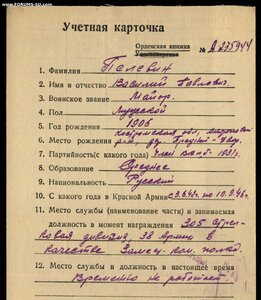 FORUMS-SU.com
Учетная карточка
Орденская книжка
Удостоверение
№ Д 235944
1. Фамилия Пелевин
2. Имя и отчество Василий Павлович
3. Воинское звание Майор.
4. Пол Мужской
5. Год рождения 1906
6. Место рождения
7. Партийность (с какого года) член ВКП(б)-1931г.
8. Образование Среднее
9. Национальность Русский
10. С какого года в Красной Армии с 3.9.42г. по 10.9.46г.
11. Место службы (наименование части) и занимаемая
должность в момент награждения 305 Стрел-
ковая дивизия, 38 Армии в
качестве Замест. ком. полка.
12. Место службы и должность в настоящее время
Временно не работает.